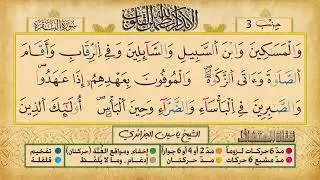 سورة البقرة
ألا بذكر الله تطمئن القلوب
حزب 3
وَالْمَسَٰكِينَ وَابْنَ السَّبِيلِ وَالسَّآئِلِينَ وَفِي الرِّقَابِ وَأَقَامَ
الصَّلَوٰةَ وَءَاتَى الزَّكَوٰةَ وَالْمُوفُونَ بِعَهْدِهِمُۥٓ إِذَا عَٰهَدُواْ
وَالصَّٰبِرِينَ فِي الْبَأْسَآءِ وَالضَّرَّآءِ وَحِينَ الْبَأْسِ أُوْلَٰٓئِكَ الَّذِينَ
الشيخ ياسين الجزائري
مدّ 6 حركات لزوماً
مدّ 2 أو 4 أو 6 جوازاً
إخفاء ومواقع الغنّة (حركتان)
تفخيم
مدّ مشبع 6 حركات
مدّ حركتان
إدغام، وما لا يُلفظ
قلقلة